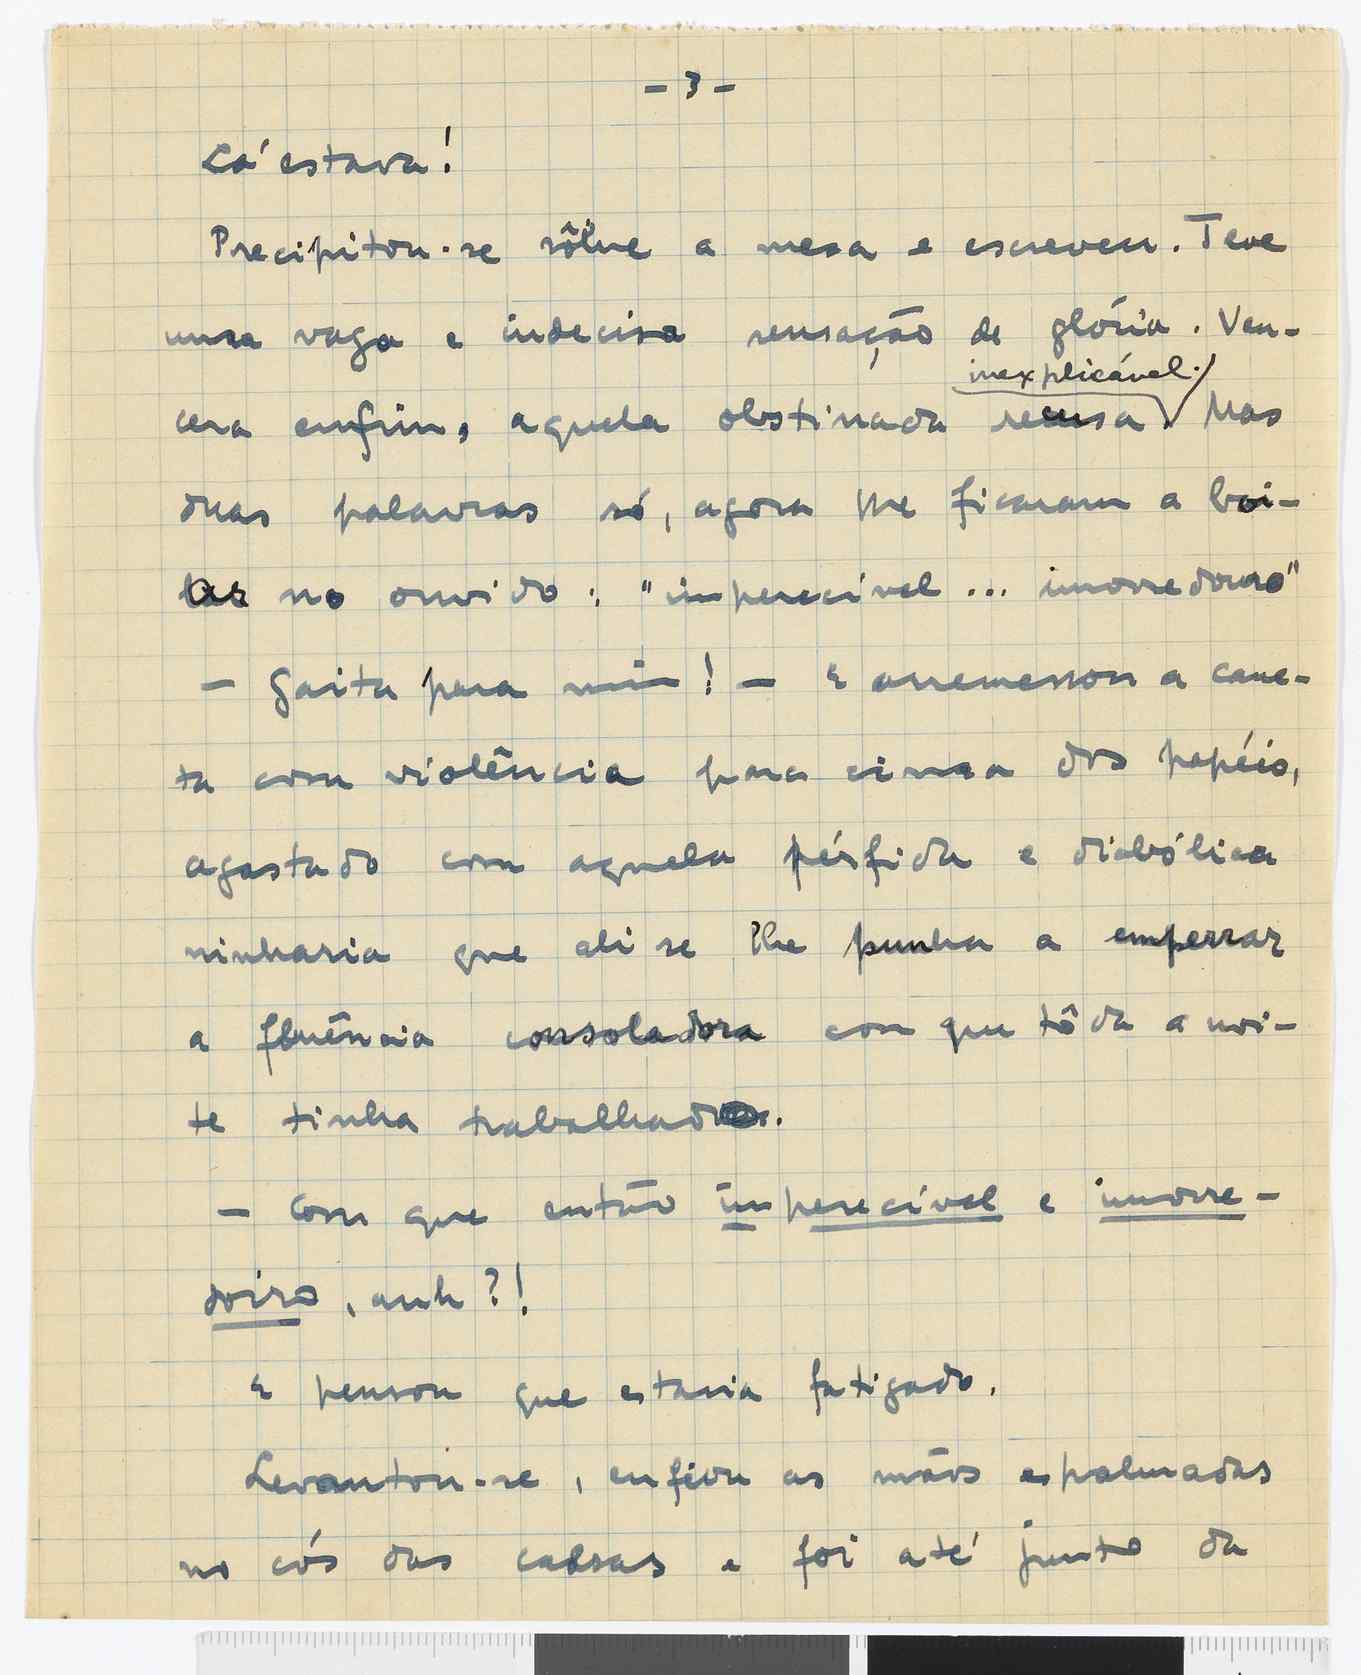 - 3 -
Lá estava!
Precipitou-se sôbre a mesa e escreveu. Teve
uma vaga e indecisa sensação de glória. Ven-
inexplicável.
cera enfim, aquela obstinada recusa. Mas
duas palavras só, agora lhe ficaram a boi-
ar no ouvido: "imperecível ... imorredouro"
— Gaita para mim! — E arremessou a cane-
ta com violência para cima dos papéis,
agastado com aquela pérfida e diabólica
ninharia que ali se lhe punha a emperrar
a fluência consoladora com que tôda a noi-
te tinha trabalhado.
— Com que então imperecível e imorre-
doiro, anh?!
E pensou que estaria fatigado.
Levantou-se, enfiou as mãos espalmadas
no cós das calsas e foi até junto da